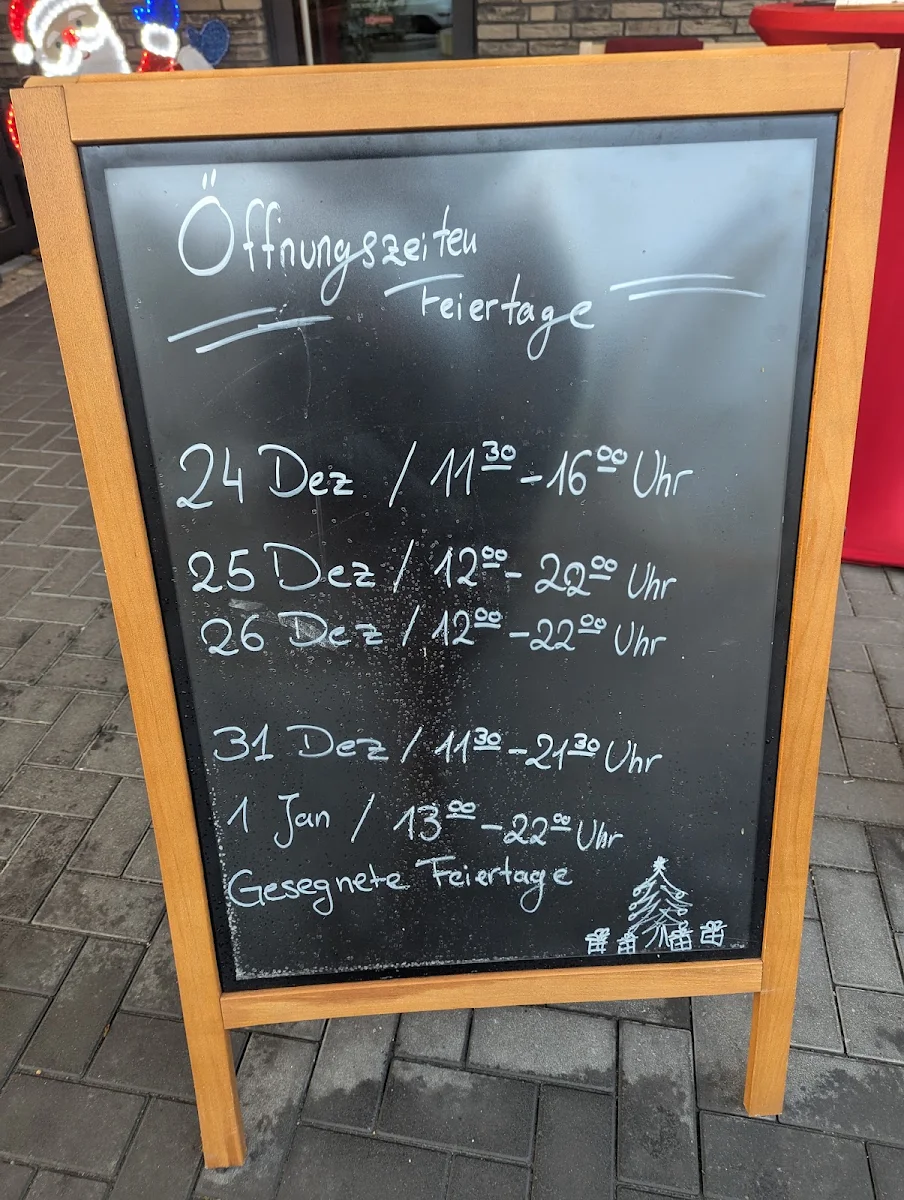 Öffnungszeiten
Feiertage
24 Dez / 11³⁰ - 16⁰⁰ Uhr
25 Dez / 12⁰⁰ - 22⁰⁰ Uhr
26 Dez / 12⁰⁰ - 22⁰⁰ Uhr
31 Dez / 11³⁰ - 21³⁰ Uhr
1 Jan / 13⁰⁰ - 22⁰⁰ Uhr
Gesegnete Feiertage